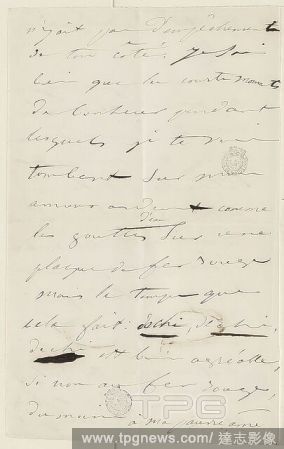 pas d'empêchements
de ton côté. Je sais
bien que les courts moments
de bonheur pendant
lesquels je te vois
tombent sur mon
amour ardent comme
les gouttes d'eau sur une
plaque de fer rouge
mais le temps que
cela fait:
est bien agréable,
si non au fer rouge,
du moins à ma pauvre âme
TPG
www.tpgnews.com / 達志影像